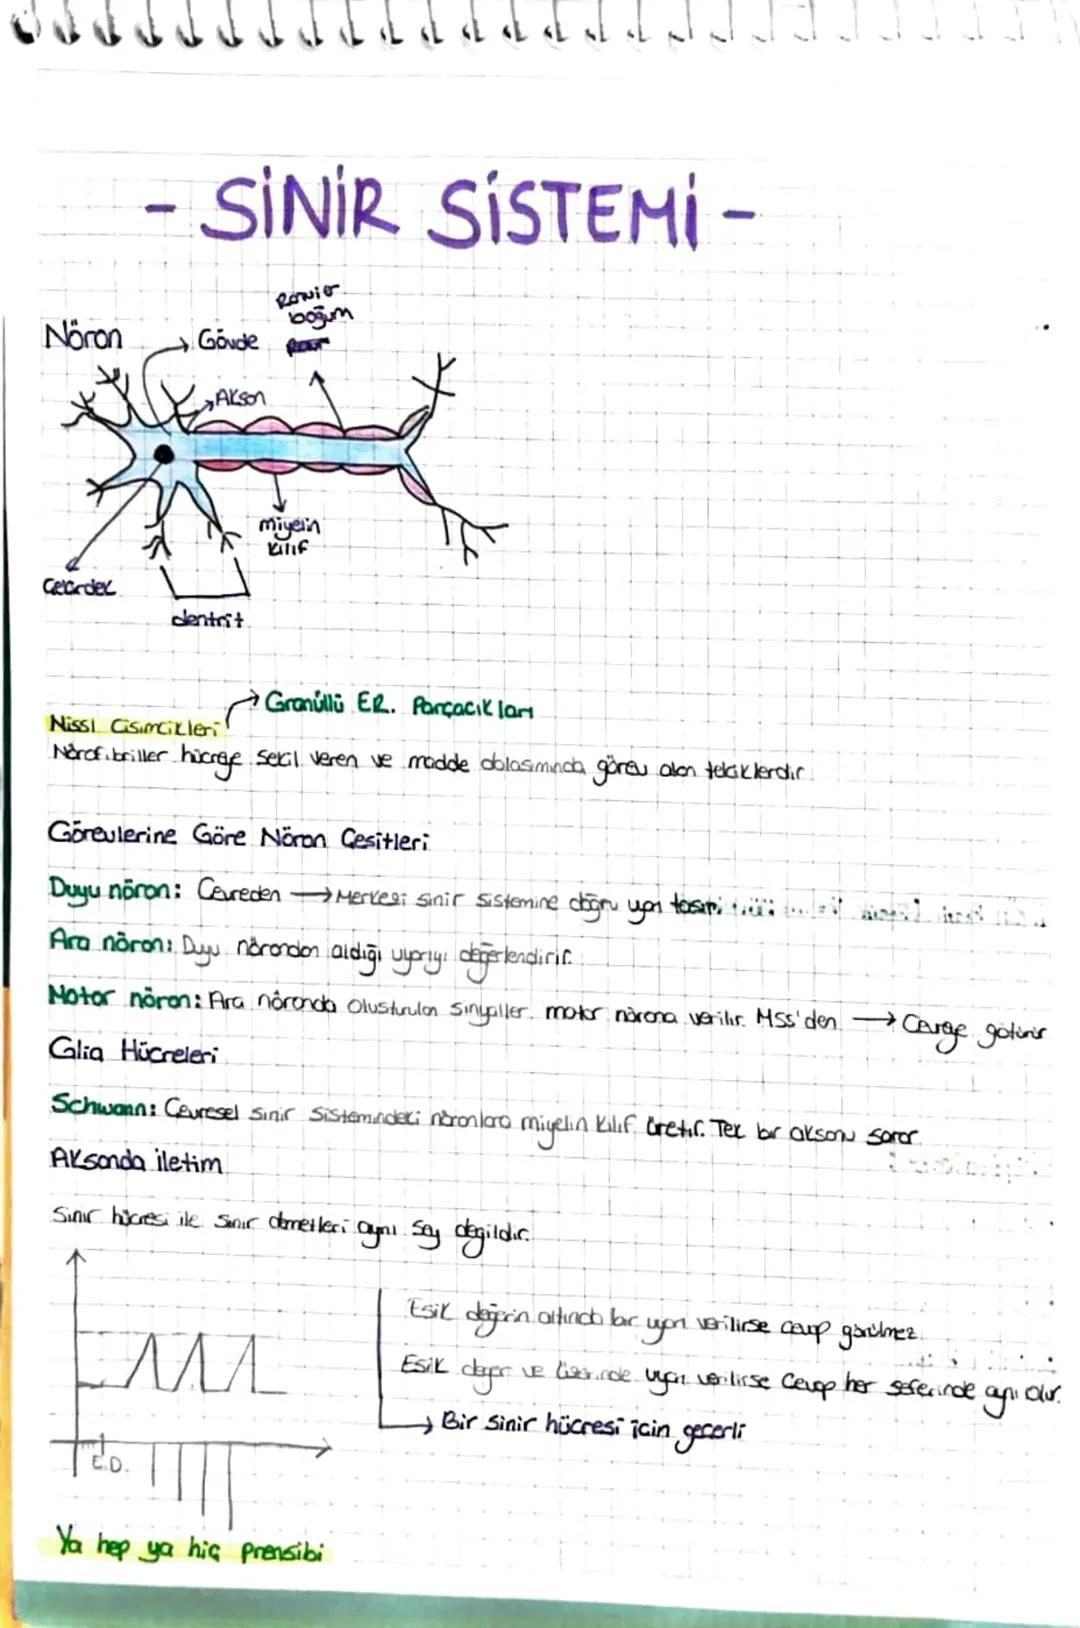 - SİNİR SİSTEMİ -
Ranvier
boğum
Nöron
Gövde
Akson
miyelin
kılıf
Çekirdek
dentrit
Granüllü ER. Parçacıkları
Nissl Cisimcikleri
Nörofibriller hücreye şekil veren ve madde iletiminde görev alan
Görevlerine Göre Nöron Çeşitleri
Duyu nöron: Çevreden → Merkezi sinir sistemine doğru uyarı taşır.
Ara nöron: Duyu nörondan aldığı uyarıyı değerlendirir.
Motor nöron: Ara nöronda oluşturulan sinyaller motor nörona verilir. MSS'den → Çevreye götürür
Glia Hücreleri
Schwann: Çevresel sinir sistemindeki nöronlara miyelin kılıf üretir. Tek bir aksonu sarar.
Aksonda iletim
Sinir hücresi ile sinir demetleri aynı şey değildir.
Eşik değerin altında bir uyarı verilirse cevap görülmez.
Eşik değer ve üzerinde uyarı verilirse cevap her seferinde aynı olur.
→ Bir sinir hücresi için geçerli
E.D.
Ya hep ya hiç prensibi